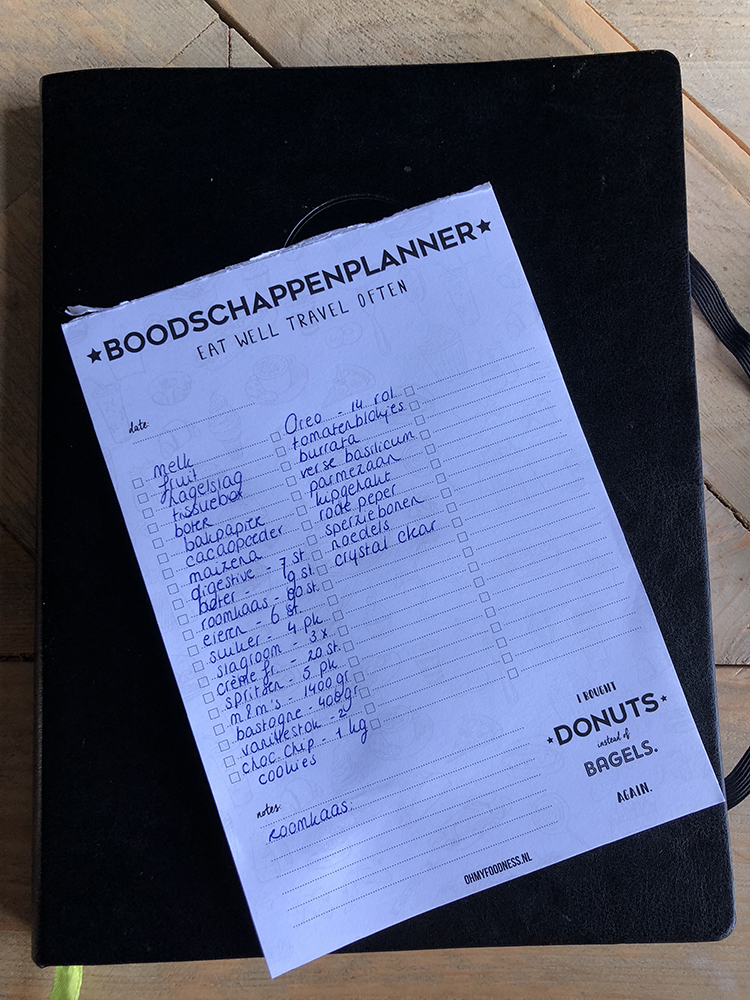 ★BOODSCHAPPENPLANNER★
EAT WELL TRAVEL OFTEN
date:
melk
fruit
hagelslag
tissuebox
boter
bakpapier
cacaopoeder
maizena
digestive - 7 st.
boter -
roomkaas - st.
eieren - 6 st.
suiker - 4 pk
slagroom - 3x
crème fr. - 20 st.
spritsen - 5 pk
m&m's - 1400 gr
bastogne - 400gr
vanillestok - 2
choc. chip - 1 kg
cookies
Oreo - 14 rol
tomatenblokjes
burrata
verse basilicum
parmezaan
kipgehakt
rode peper
sperziebonen
noedels
crystal clear
notes:
roomkaas:
I BOUGHT
★DONUTS★
instead of
BAGELS.
AGAIN.
OHMYFOODNESS.NL